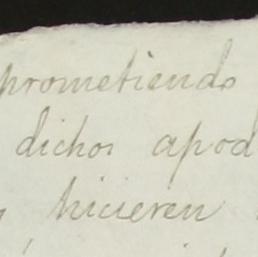 prometiendo
dichos apod
hicieren